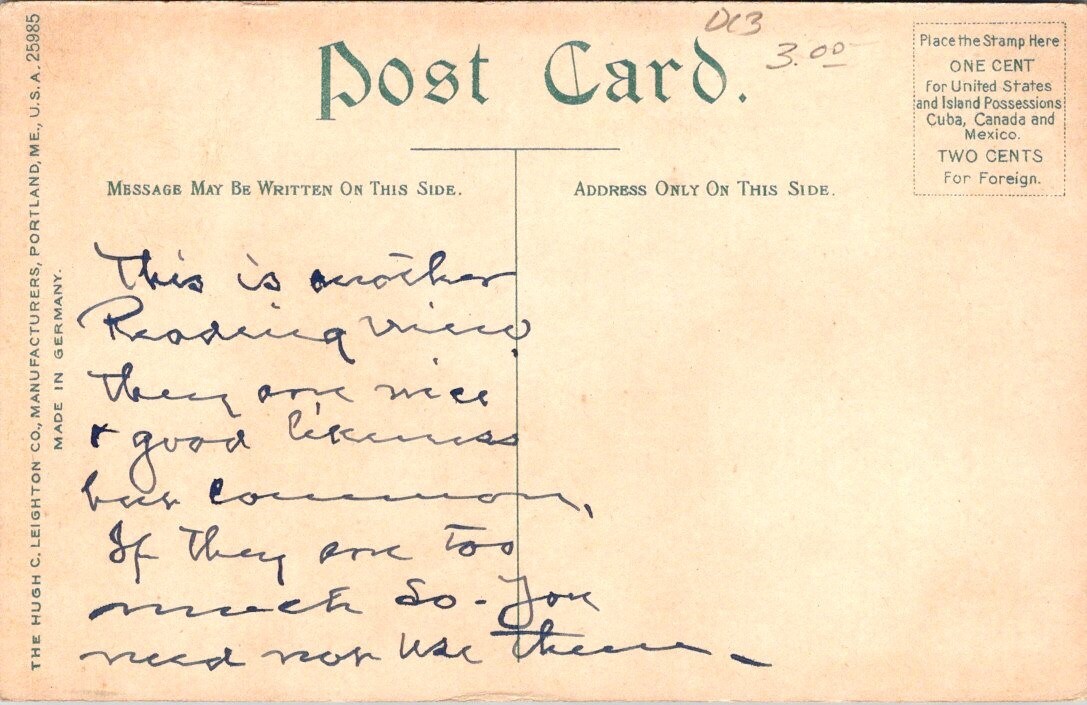 DC3
3.00
Post Card.
Place the Stamp Here
ONE CENT
For United States
and Island Possessions
Cuba, Canada and
Mexico.
TWO CENTS
For Foreign.
MESSAGE MAY BE WRITTEN ON THIS SIDE.
ADDRESS ONLY ON THIS SIDE.
THE HUGH C. LEIGHTON CO., MANUFACTURERS, PORTLAND, ME., U.S.A. 25985
MADE IN GERMANY.
This is another
Reading view
they are nice
+ good likeness
but common,
If they are too
much so - You
need not use them -